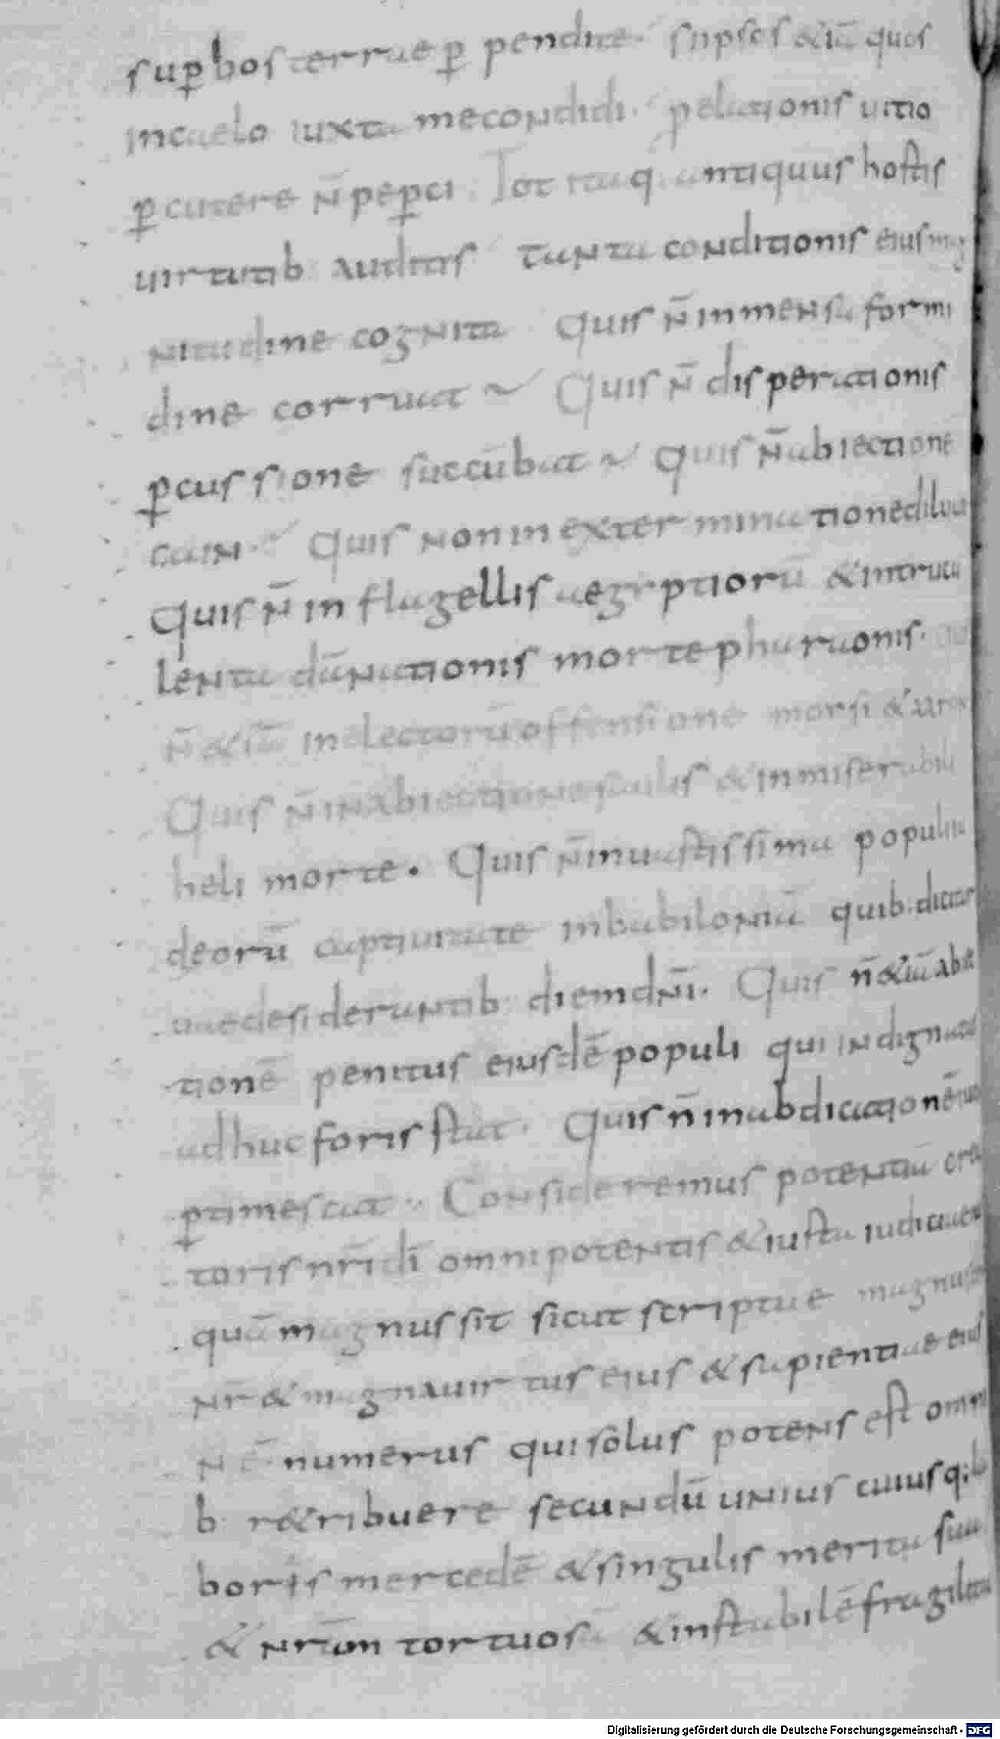 sup̱bos terrae p̱ pendite. si ipsos &iā quos
in caelo iuxta me condidi. p̱ elationis uitio
p̱cutere n̄ pep̱ci. Tot itaq. antiquus hostis
uirtutib: auditis tanta conditionis eius mag
nitudine cognita quis n̄ inmensa formi
dine corruat ~ Quis n̄ disperationis
p̱cussione succūbat ~ Quis n̄ abiectionē
cain. Quis non in exterminatione diluuii
quis n̄ in flagellis aegyptiorū & in trucu
lenta dānationis morte pharaonis.
n̄ &iā in electorū offensione
Quis n̄ in abiectione saulis & in miserabili
heli morte. Quis n̄ in uastissima populi iu
deorū captiuitate in babiloniā quib: dicitur
uae desiderantib: diem dn̄i. Quis n̄ &iā abie
tionē penitus eiusdē populi qui indignatus
adhuc foris stat. Quis n̄ in abdicationē
p̱timescat. Consideremus potentiā crea
toris nr̄i dī omnipotentis & iusta iudicia eius
quā magnus sit sicut scriptū ē magnus
nr̄ & magna uirtus eius & sapientiae eius
n ē numerus qui solus potens est omni
b: r&ribuere secundū unius cuiusq: la
boris mercedē & singulis merita sua
& nr̄am tortuosā & instabilē fragilitatē
Digitalisierung gefördert durch die Deutsche Forschungsgemeinschaft - DFG